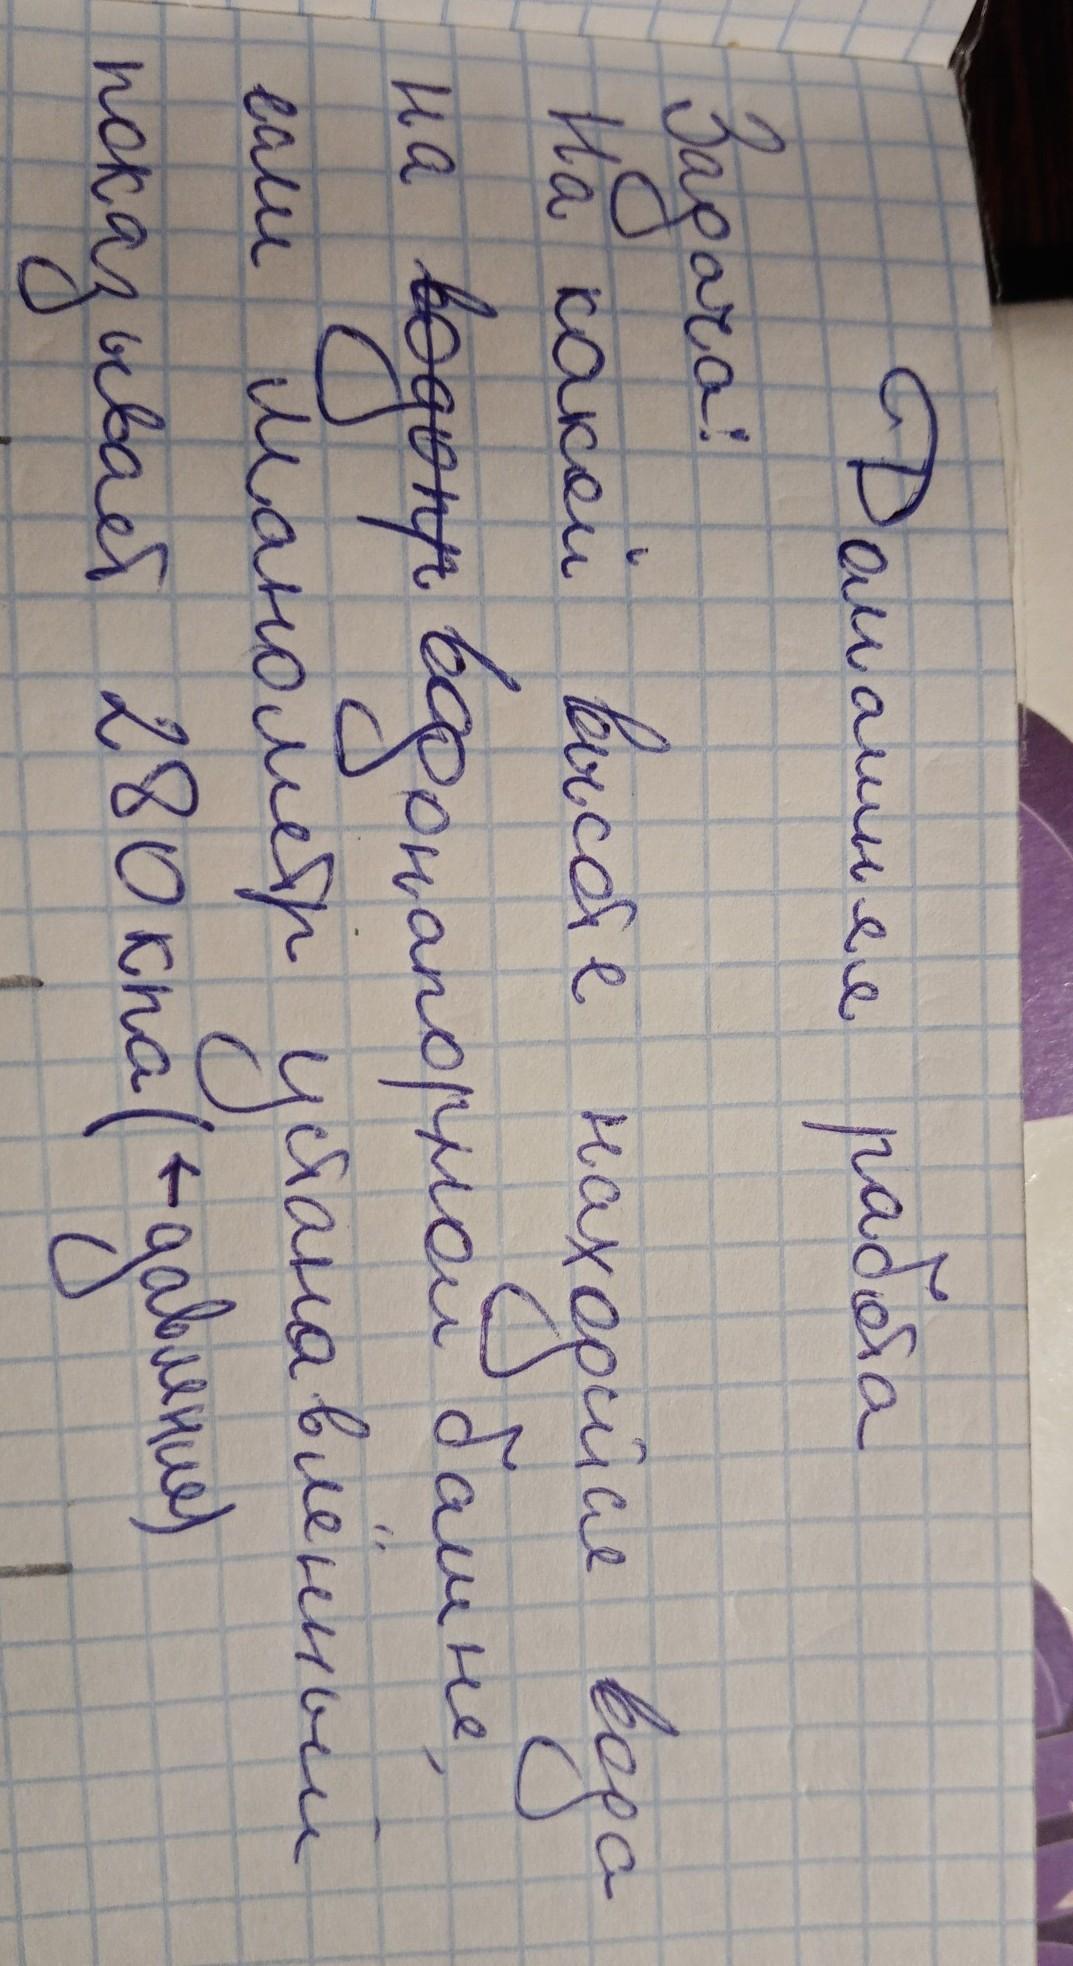 Домашняя работа
Задача:
На какой высоте находится вода
на водонапорной башне,
если манометр установленный
показывает 280 кпа (← давление)